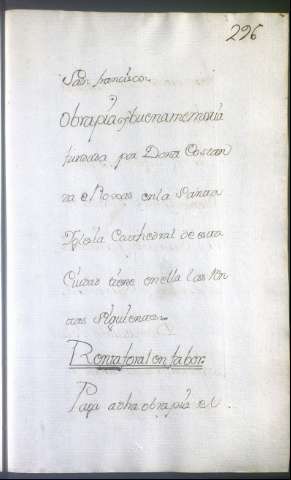 296
San francisco
Obrapia y buena memoria
fundada por Dona Costan
za e Roxas en la Santa
Iglesia Cathedral de esta
Ciudad tiene en ella las Ren
tas siguientes
Renta total en fabor
Paga a dha obrapia el